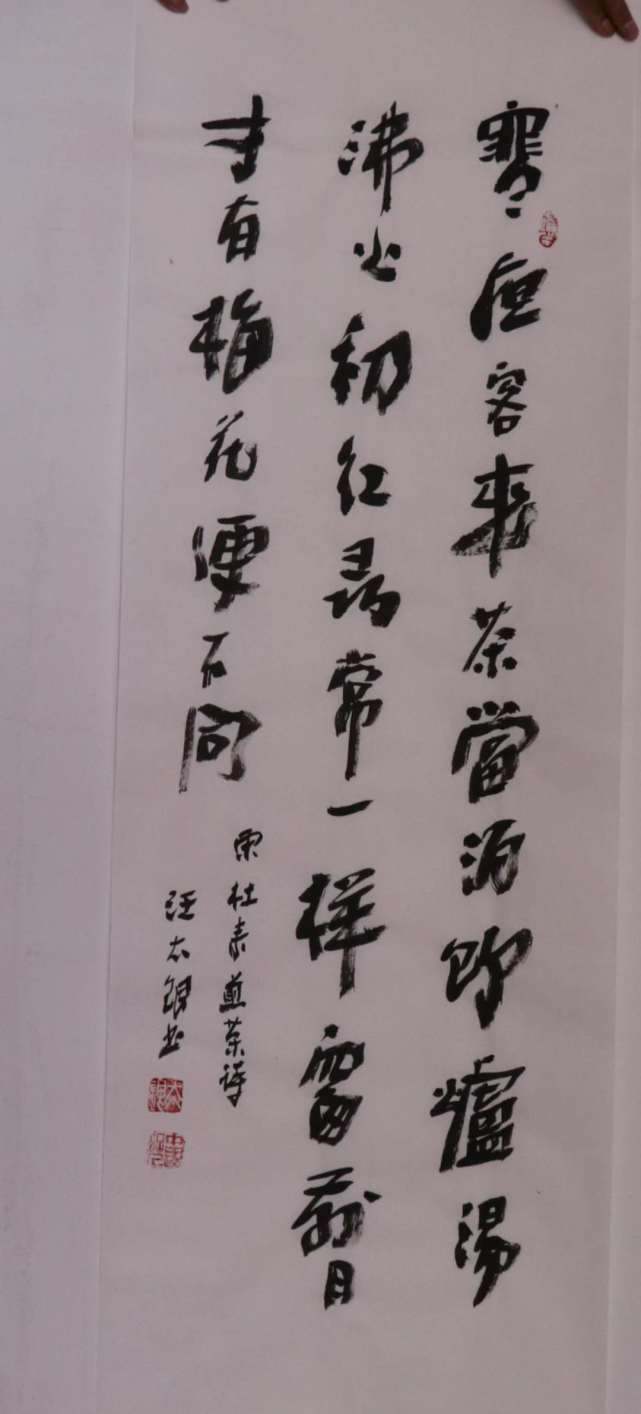 寒夜客來茶當酒竹爐湯
沸火初红尋常一样窗前月
才有梅花便不同
宋杜耒煎茶诗
汪太銀书